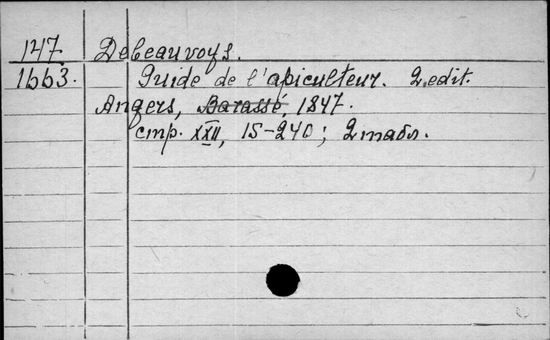 147 Debeauvoys.
1663. Guide de l'apiculteur. 2. edit.
Angers, Barassé, 1847.
стр. XXII, 15-240; 2 табл.